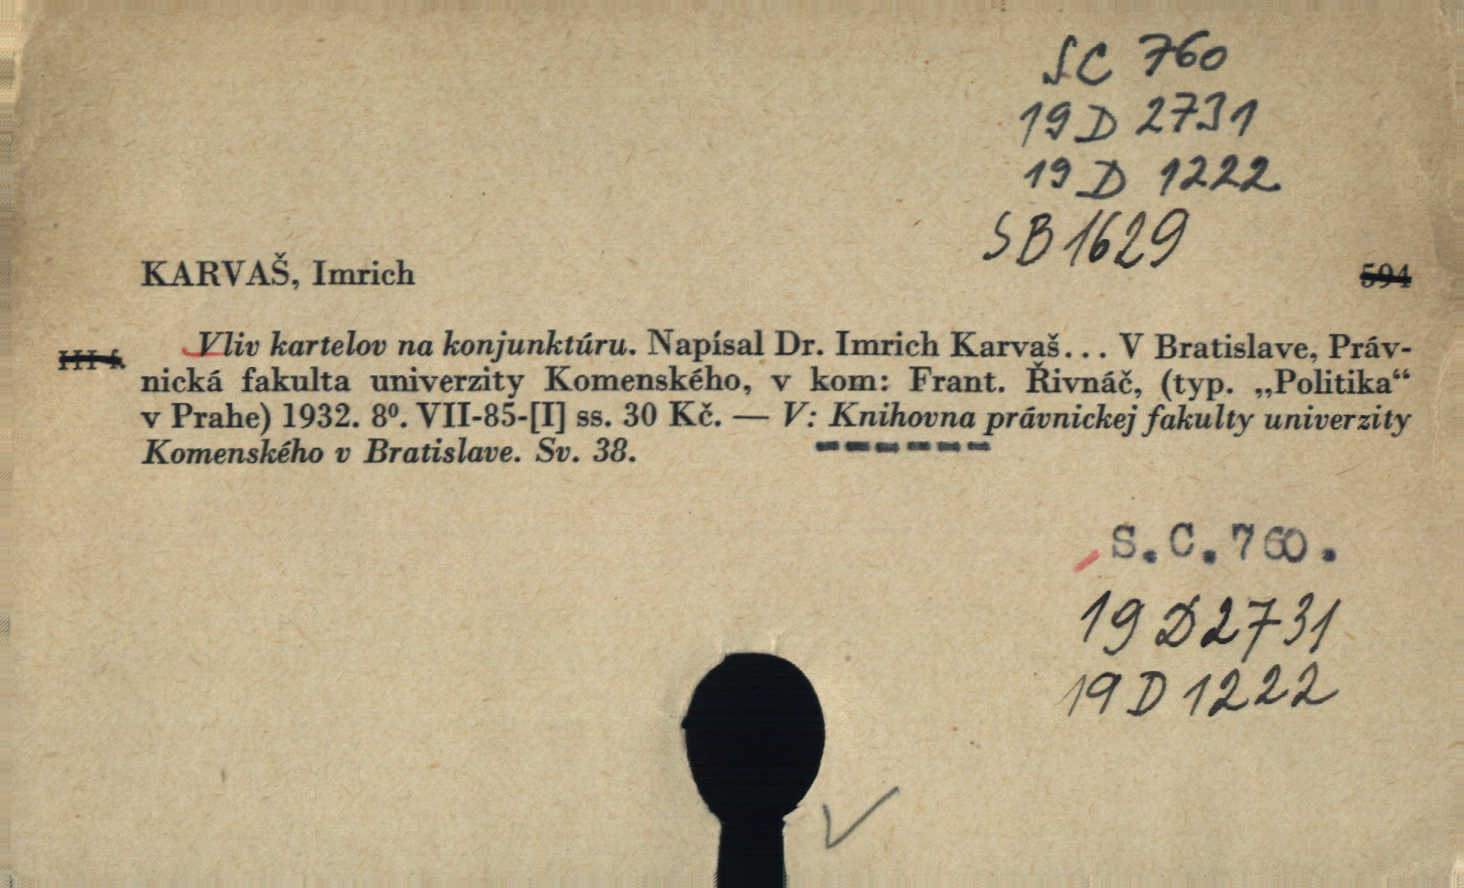 SC 760
19 D 2731
19 D 1222
SB 1629
KARVAŠ, Imrich
594
III f.
Vliv kartelov na konjunktúru. Napísal Dr. Imrich Karvaš... V Bratislave, Práv-
nická fakulta univerzity Komenského, v kom: Frant. Řivnáč, (typ. „Politika“
v Prahe) 1932. 8⁰. VII-85-[I] ss. 30 Kč. — V: Knihovna právnickej fakulty univerzity
Komenského v Bratislave. Sv. 38.
S.C.760.
19 D 2731
19 D 1222